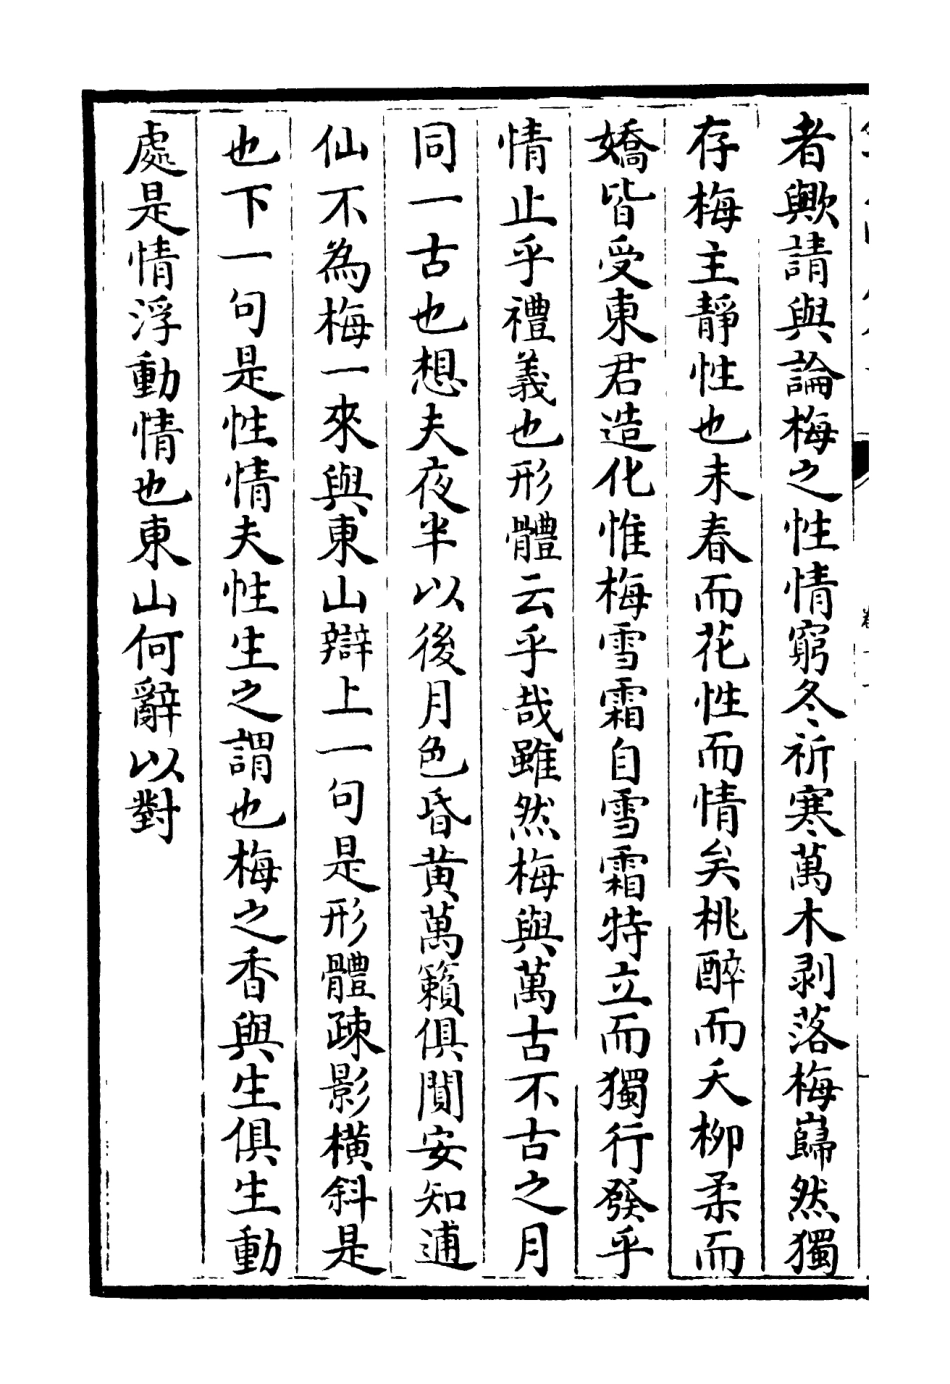 者歟請與論梅之性情窮冬祈寒萬木剥落梅巋然獨
存梅主靜性也未春而花性而情矣桃醉而夭柳柔而
嬌皆受東君造化惟梅雪霜自雪霜特立而獨行發乎
情止乎禮義也形體云乎哉雖然梅與萬古不古之月
同一古也想夫夜半以後月色昏黄萬籟俱閴安知逋
仙不為梅一來與東山辯上一句是形體疎影橫斜是
也下一句是性情夫性生之謂也梅之香與生俱生動
處是情浮動情也東山何辭以對